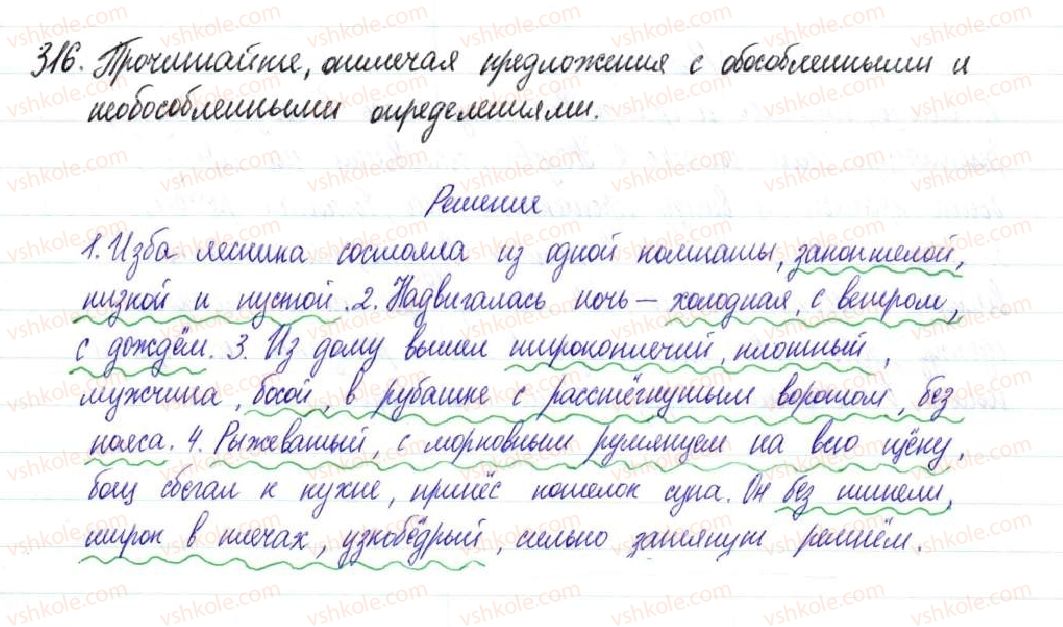 316. Прочитайте, отмечая предложения с обособленными и
необособленными определениями.
Решение
1. Изба лесника состояла из одной комнаты, закоптелой,
низкой и пустой. 2. Надвигалась ночь – холодная, с ветром,
с дождём. 3. Из дому вышел широкоплечий, плотный,
мужчина, босой, в рубашке с расстёгнутым воротом, без
пояса. 4. Рыжеватый, с морковным румянцем на всю щёку,
боец сбегал к кухне, принёс котелок супа. Он без шинели,
широк в плечах, узкобёдрый, сильно затянут ремнём.